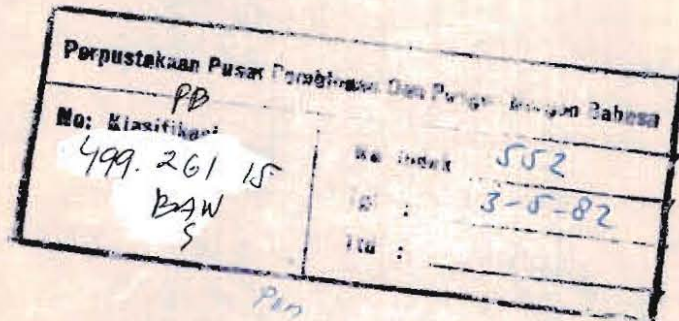 Perpustakaan Pusat Pembinaan Dan Pengembangan Bahasa
PB
No: Klasifikasi
499. 261 15
BAW
S
No Induk 552
Tgl : 3-5-82
Ttd :